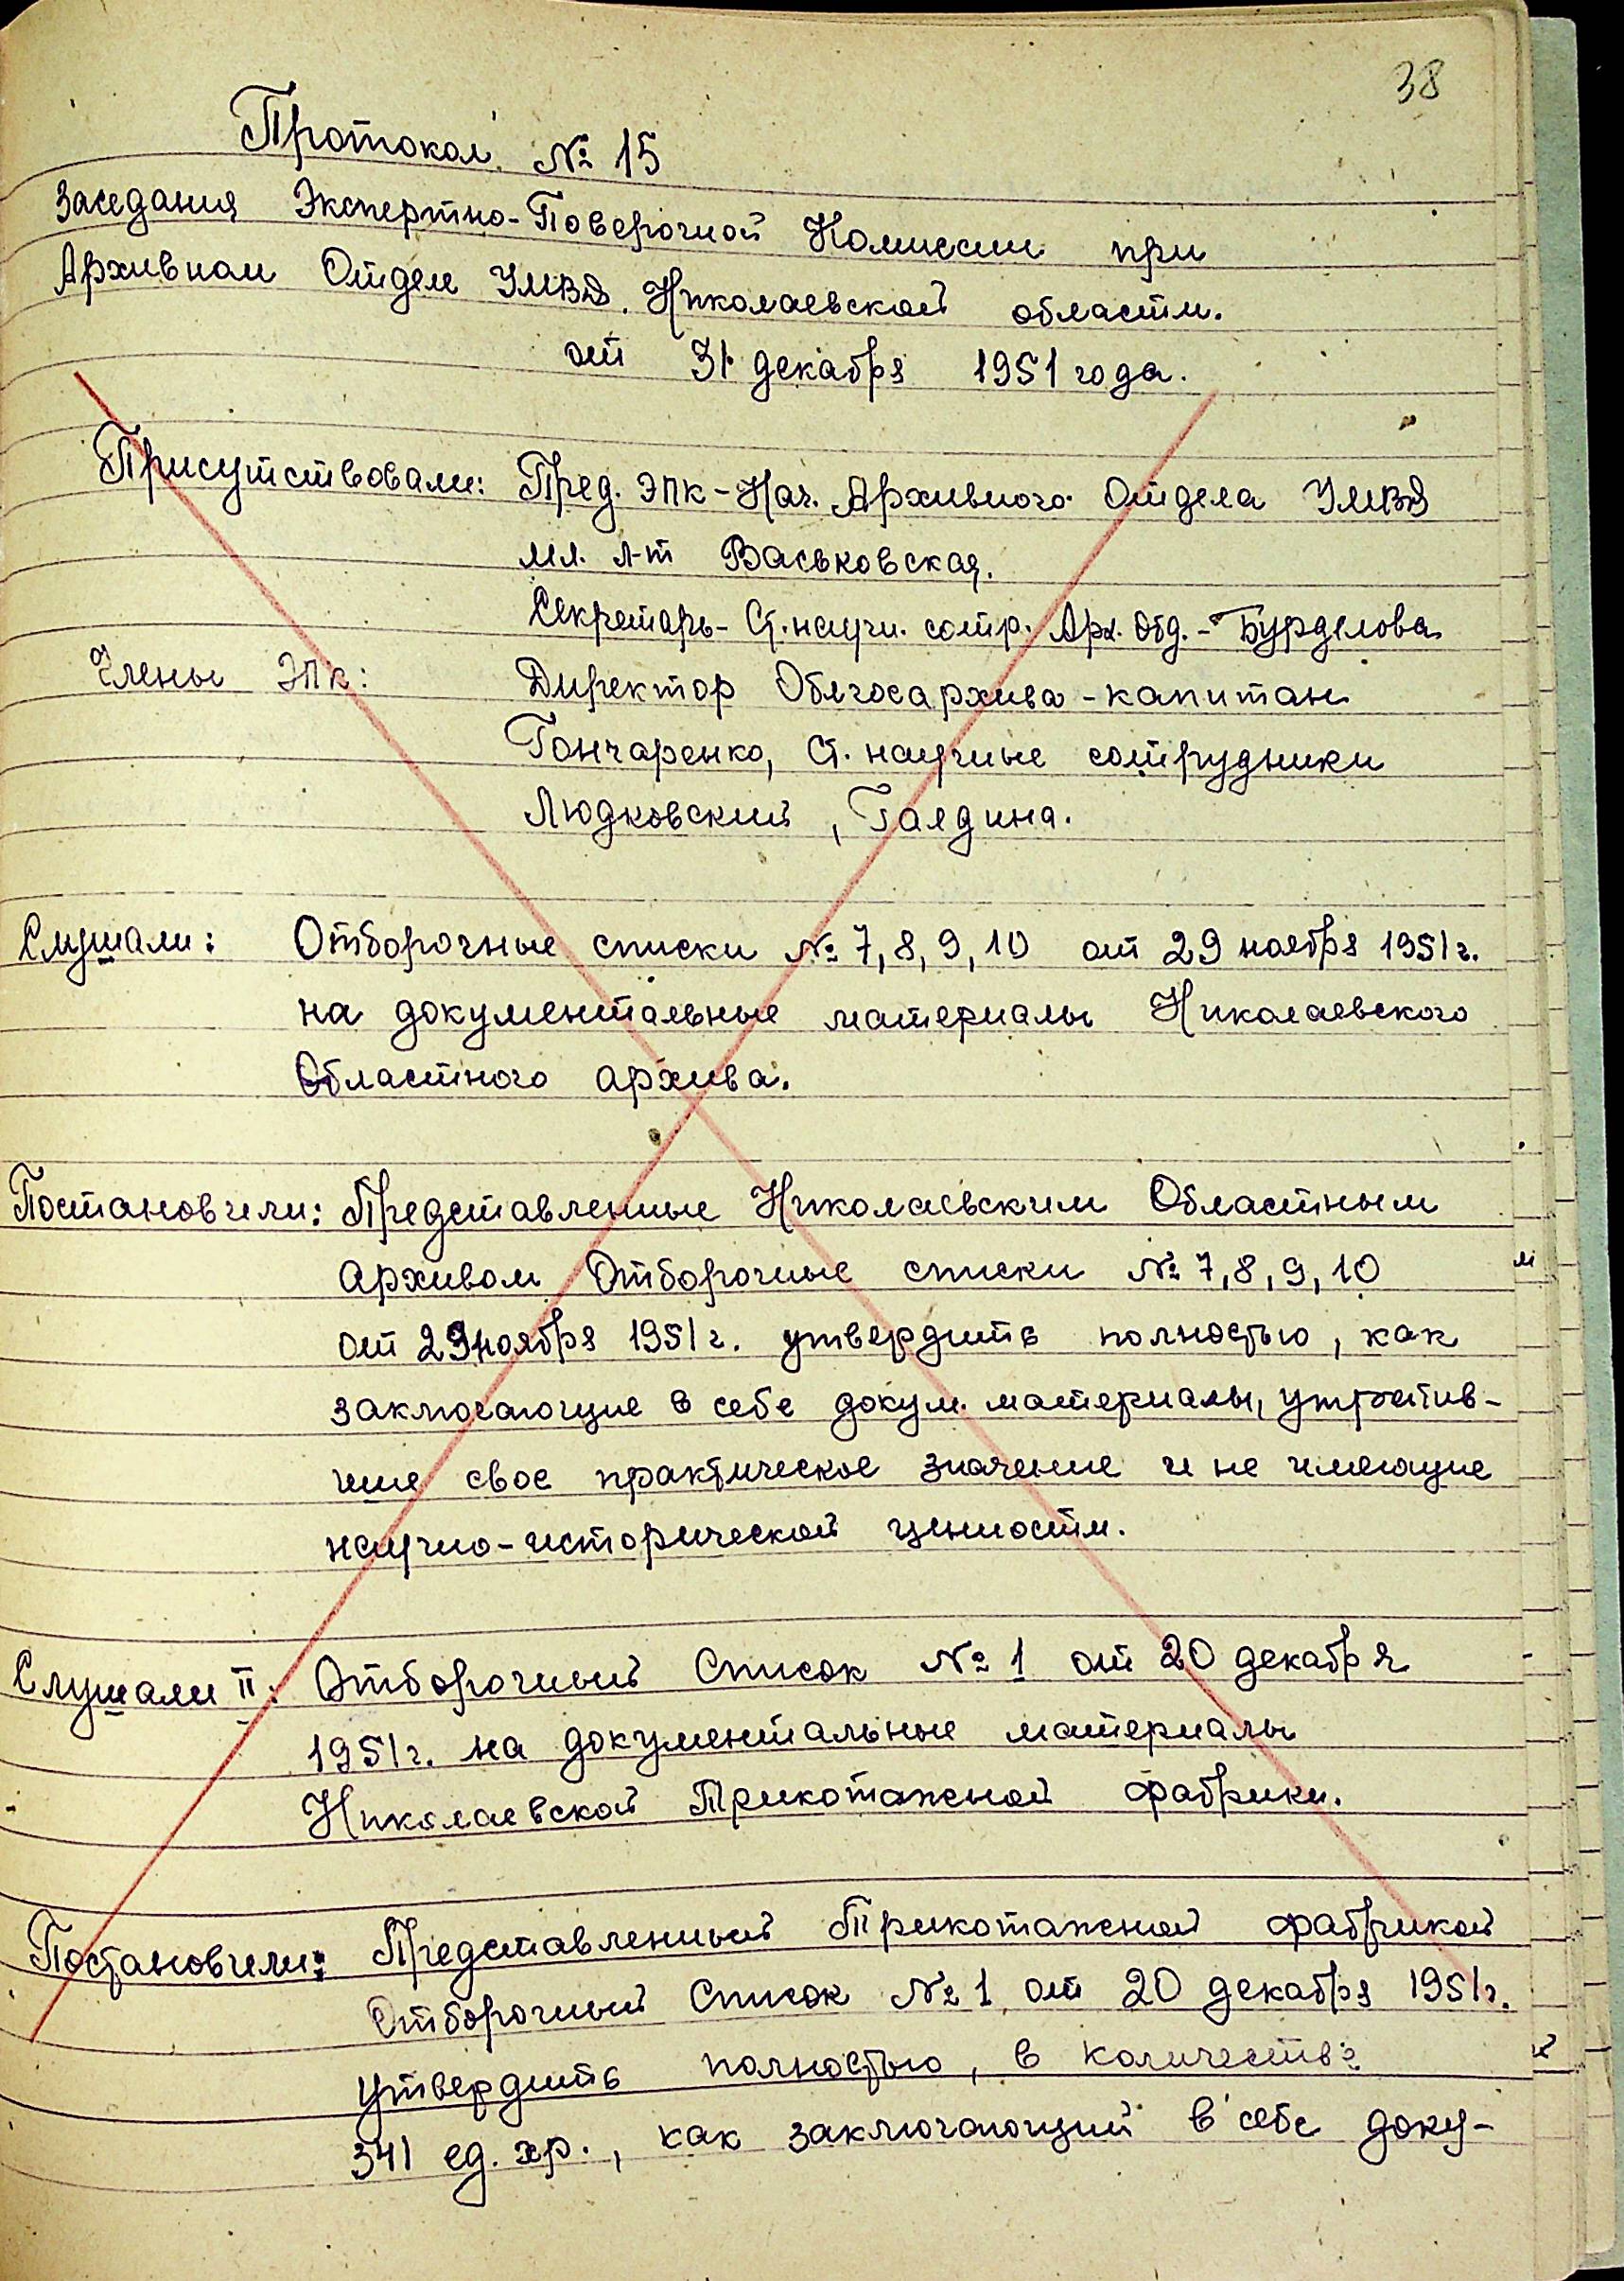 38
Протокол № 15
Заседания Экспертно-Поверочной Комиссии при
Архивном Отделе УМВД Николаевской области.
от 31 декабря 1951 года.
Присутствовали: Пред. ЭПК - Нач. Архивного Отдела УМВД
мл. л-т Васьковская.
Секретарь - Ст. научн. сотр. Арх. Отд. - Бурделова
Члены ЭПК: Директор Облгосархива - капитан
Гончаренко, Ст. научные сотрудники
Людковский, Галдина.
Слушали: Отборочные списки № 7, 8, 9, 10 от 29 ноября 1951 г.
на документальные материалы Николаевского
Областного архива.
Постановили: Представленные Николаевским Областным
Архивом Отборочные списки № 7, 8, 9, 10
от 29 ноября 1951 г. утвердить полностью, как
заключающие в себе докум. материалы, утратив-
шие свое практическое значение и не имеющие
научно-исторической ценности.
Слушали II: Отборочный Список № 1 от 20 декабря
1951 г. на документальные материалы
Николаевской Трикотажной фабрики.
Постановили: Представленный Трикотажной фабрикой
Отборочный Список № 1 от 20 декабря 1951 г.
утвердить полностью, в количестве
341 ед. хр., как заключающий в себе доку-